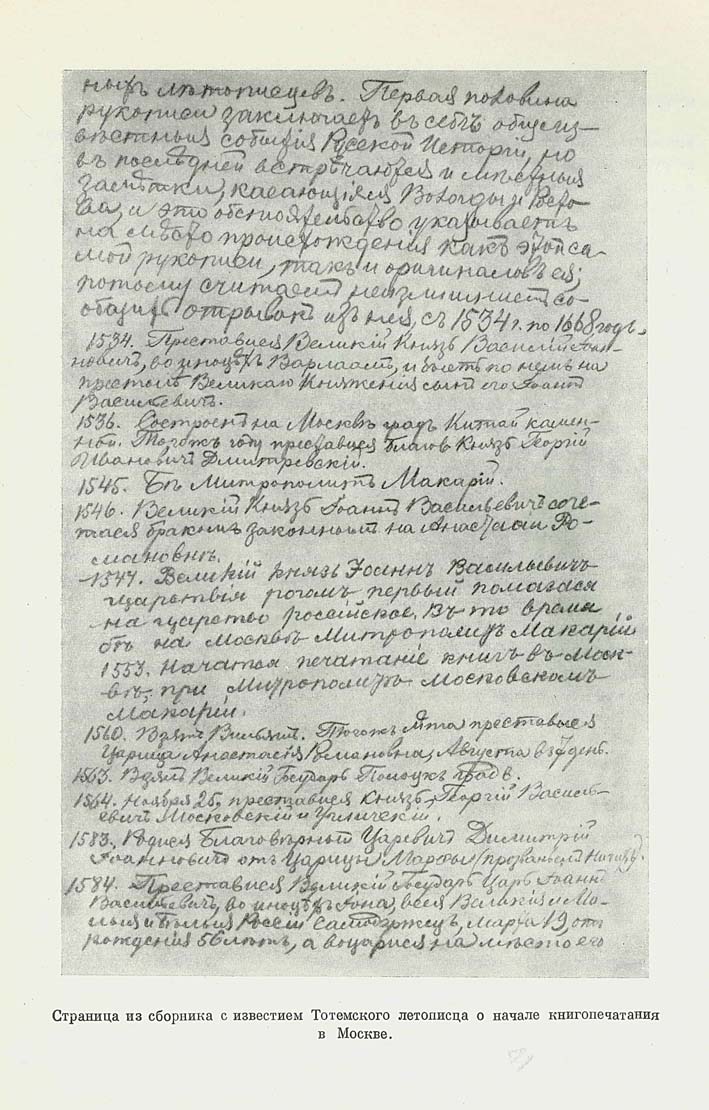 ныхъ лѣтописцевъ. Первая половина
рукописи заключаетъ въ себѣ общеиз-
вѣстныя событія Русской Исторіи, но
въ послѣдней встрѣчаются и мѣстныя
замѣтки, касающіяся Вологды и
и это обстоятельство указываетъ
на мѣсто происхожденія какъ этой са-
мой рукописи, такъ и оригиналовъ ея;
потому считаемъ неизлишнимъ со-
общить отрывокъ изъ нея, съ 1534 г. по 1668 годъ.
1534. Преставися Великій Князь Василій Іоан-
новичъ, во иноцѣхъ Варлаамъ, и бысть по немъ на
престолъ Великаго Княженія сынъ его Іоаннъ
Васильевичъ.
1536. Состроенъ на Москвѣ градъ Китай камен-
ной. Тогожъ году преставися благов. Князь Георгій
Ивановичъ Дмитревскій.
1545. Бѣ Митрополитъ Макарій.
1546. Великій Князь Іоаннъ Васильевичъ соче-
тася бракомъ законнымъ на Анастасіи Ро-
мановнѣ.
1547. Великій князь Іоаннъ Васильевичъ
царствія рогомъ первый помазася
на царство россійское. Въ то время
бѣ на Москвѣ Митрополитъ Макарій
1553. Начатся печатаніе книгъ въ Моск-
вѣ, при Митрополитѣ Московскомъ
Макаріи.
1560. Взятъ Вильянъ. Тогожъ лѣта преставися
Царица Анастасія Романовна, Августа въ 7 день.
1563. Взялъ Великій Государь Полоцкъ градъ.
1564. Ноября 25, преставися Князь Георгій Василь-
евичъ Московскій и Угличскій.
1583. Родися Благовѣрный Царевичъ Димитрій
Іоанновичъ отъ Царицы Марѳы, прозваньемъ Нагихъ.
1584. Преставися Великій Государь Царь Іоаннъ
Васильевичъ, во иноцѣхъ Іона, всея Великія и Ма-
лыя и Бѣлыя Россіи Самодержецъ, Марта 19, отъ
рожденія 56 лѣтъ, а воцарися на мѣсто его
Страница из сборника с известием Тотемского летописца о начале книгопечатания
в Москве.